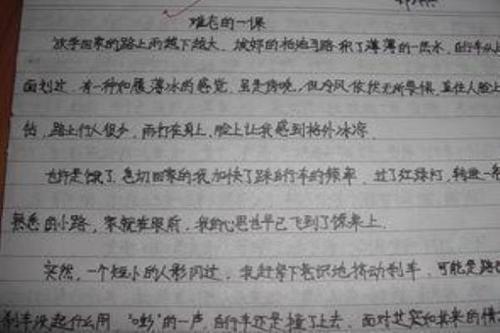 难忘的一课
放学回家的路上雨越下越大，坡好的柏油马路积了薄薄的一层水，自行车从上
面划过，有一种如履薄冰的感觉，虽是傍晚，但冷风依然无所畏惧，直往人脸上
钻，路上行人很少，雨打在身上，脸上让我感到格外冰凉
也许是饿了，急切回家的我加快了踩自行车的频率，过了红绿灯，转进一条
熟悉的小路，家就在眼前，我的心思也早已飞到了饭桌上
突然，一个短小的人影闪过，我赶紧下意识地挤动刹车，可能是路
刹车没起什么用，“吵”的一声，自行车还是撞了上去，面对这突如其来的情